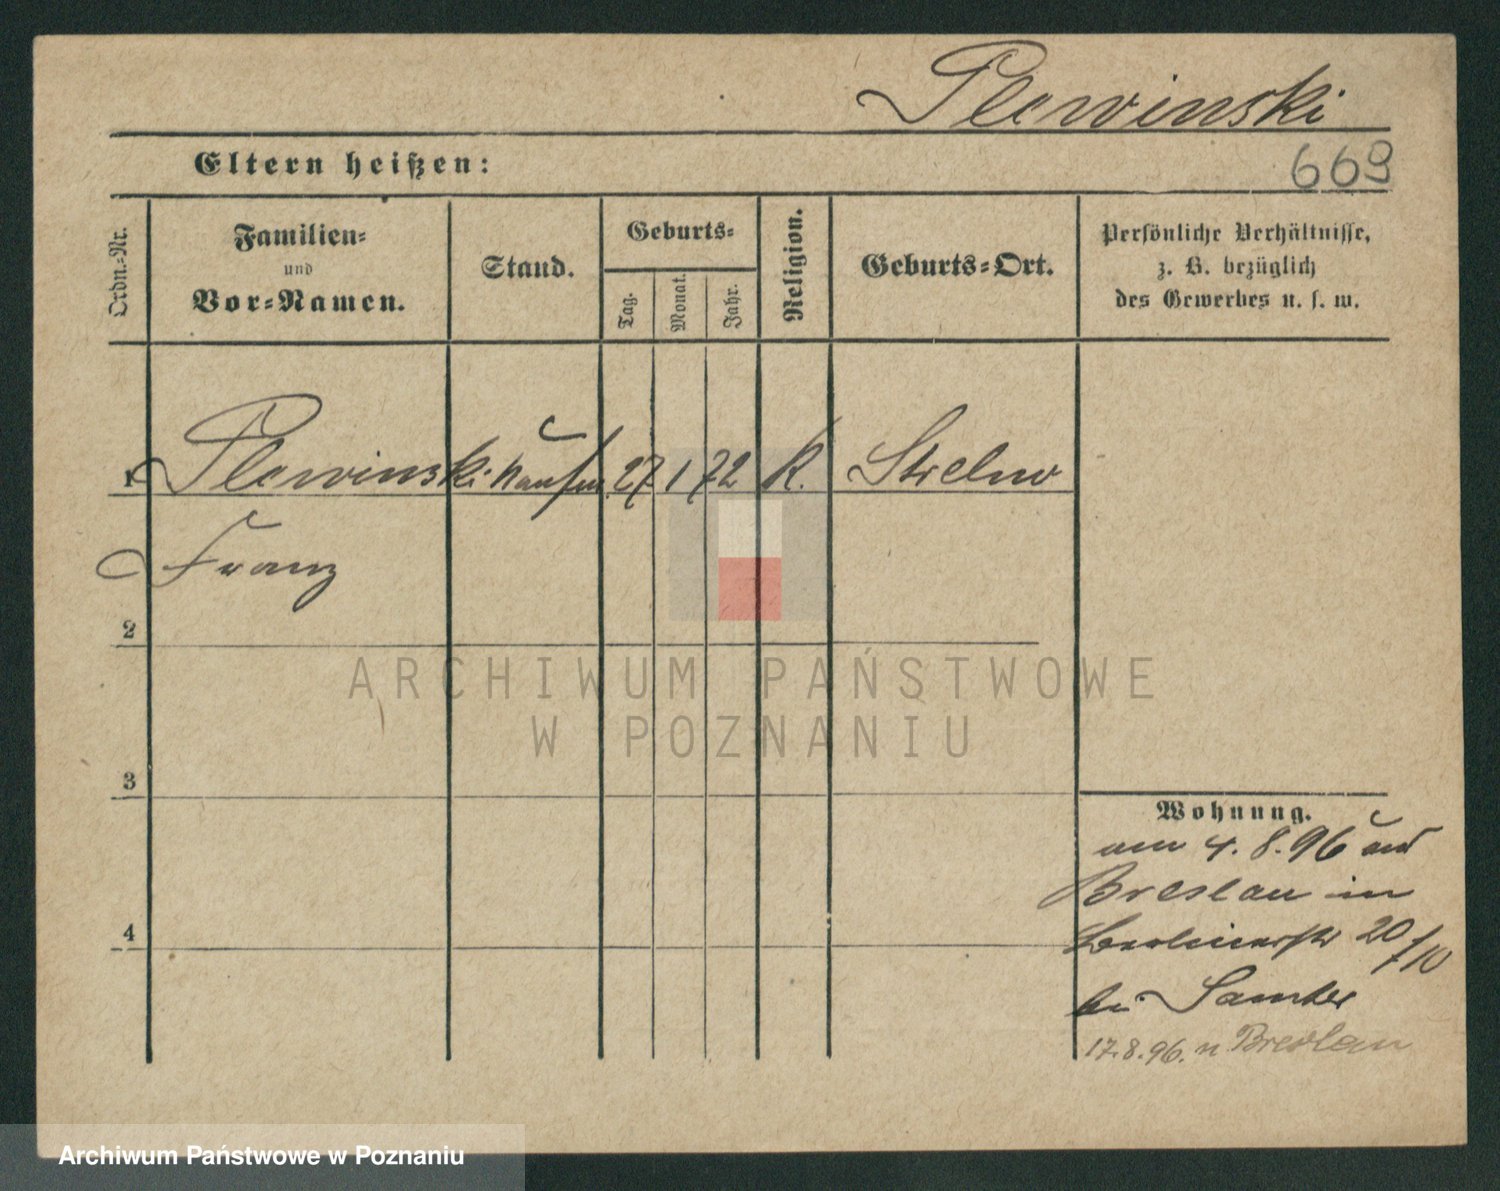 Plewinski
Eltern heißen:
669
Ordn.-Nr.
Familien-
und
Vor-Namen.
Stand.
Geburts-
Tag.
Monat.
Jahr.
Religion.
Geburts-Ort.
Persönliche Verhältnisse,
z. B. bezüglich
des Gewerbes u. s. w.
1 Plewinski Kaufm. 27 1 72 K. Strelno
Franz
2
ARCHIWUM PAŃSTWOWE
W POZNANIU
3
Wohnung.
am 4. 8. 96 aus
Breslau in
4
Berlinerstr 20/10
bei Samter
17.8.96. n Breslau
Archiwum Państwowe w Poznaniu